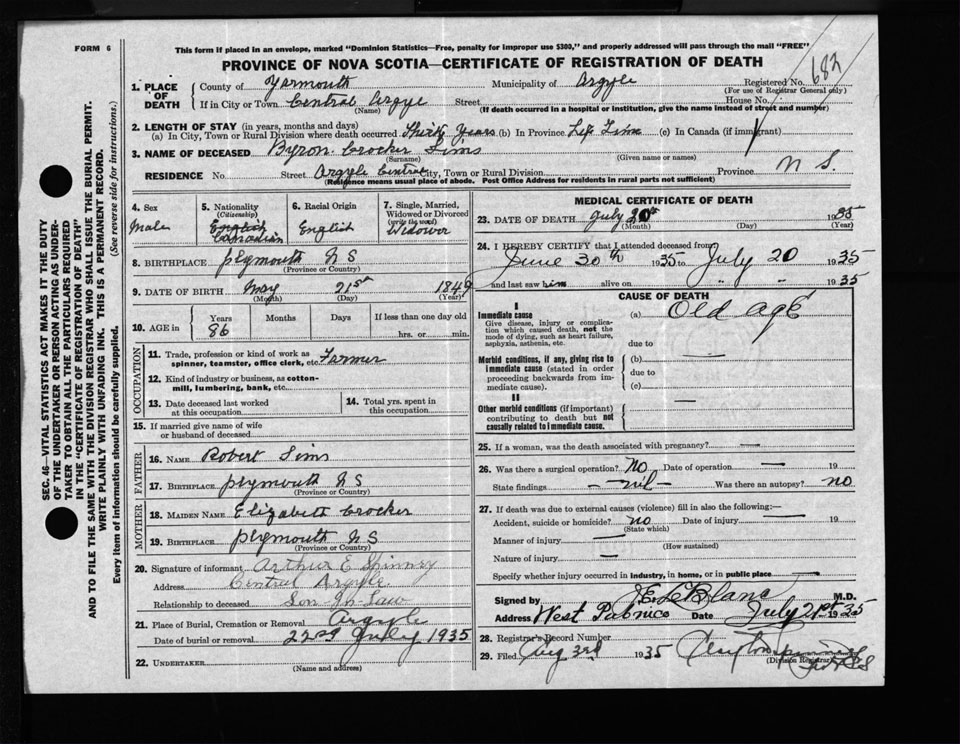 FORM 6
This form if placed in an envelope, marked "Dominion Statistics—Free, penalty for improper use $300," and properly addressed will pass through the mail "FREE"
PROVINCE OF NOVA SCOTIA—CERTIFICATE OF REGISTRATION OF DEATH
SEC. 46—VITAL STATISTICS ACT MAKES IT THE DUTY
OF THE UNDERTAKER OR PERSON ACTING AS UNDER-
TAKER TO OBTAIN ALL THE PARTICULARS REQUIRED
IN THE "CERTIFICATE OF REGISTRATION OF DEATH"
AND TO FILE THE SAME WITH THE DIVISION REGISTRAR WHO SHALL ISSUE THE BURIAL PERMIT.
WRITE PLAINLY WITH UNFADING INK. THIS IS A PERMANENT RECORD.
Every item of information should be carefully supplied. (See reverse side for instructions.)
1. PLACE OF DEATH County of Yarmouth Municipality of Argyle Registered No. 682
(For use of Registrar General only)
If in City or Town Central Argyle Street House No.
(Name) (If death occurred in a hospital or institution, give the name instead of street and number)
2. LENGTH OF STAY (in years, months and days)
(a) In City, Town or Rural Division where death occurred Thirty Years (b) In Province Life Time (c) In Canada (if immigrant)
3. NAME OF DECEASED Byron Crocker Sims
(Surname) (Given name or names)
RESIDENCE No. Street Argyle Central City, Town or Rural Division Province N S.
(Residence means usual place of abode. Post Office Address for residents in rural parts not sufficient)
4. Sex Male
5. Nationality (Citizenship) English Canadian
6. Racial Origin English
7. Single, Married, Widowed or Divorced (write the word) Widower
8. BIRTHPLACE Plymouth N S
(Province or Country)
9. DATE OF BIRTH May 21st 1849
(Month) (Day) (Year)
10. AGE in Years 86 Months Days If less than one day old hrs. or min.
OCCUPATION
11. Trade, profession or kind of work as spinner, teamster, office clerk, etc. Farmer
12. Kind of industry or business, as cotton-mill, lumbering, bank, etc.
13. Date deceased last worked at this occupation
14. Total yrs. spent in this occupation
15. If married give name of wife or husband of deceased
FATHER
16. NAME Robert Sims
17. BIRTHPLACE Plymouth N S
(Province or Country)
MOTHER
18. MAIDEN NAME Elizabeth Crocker
19. BIRTHPLACE Plymouth N S
(Province or Country)
20. Signature of informant Arthur E Spinney
Address Central Argyle
Relationship to deceased Son In Law
21. Place of Burial, Cremation or Removal Argyle
Date of burial or removal 22nd July 1935
22. UNDERTAKER
(Name and address)
MEDICAL CERTIFICATE OF DEATH
23. DATE OF DEATH July 20th 1935
(Month) (Day) (Year)
24. I HEREBY CERTIFY that I attended deceased from
June 30th 1935 to July 20 1935
and last saw him alive on " " 1935
CAUSE OF DEATH
I
Immediate cause (a) Old age
Give disease, injury or complication which caused death, not the mode of dying, such as heart failure, asphyxia, asthenia, etc. due to
Morbid conditions, if any, giving rise to immediate cause (stated in order proceeding backwards from immediate cause). (b) —
due to
(c)
II
Other morbid conditions (if important) contributing to death but not causally related to immediate cause. —
25. If a woman, was the death associated with pregnancy? —
26. Was there a surgical operation? No Date of operation — 19
State findings - nil - Was there an autopsy? no
27. If death was due to external causes (violence) fill in also the following:—
Accident, suicide or homicide? no Date of injury — 19
(State which)
Manner of injury —
(How sustained)
Nature of injury —
Specify whether injury occurred in industry, in home, or in public place —
Signed by J.E. LeBlanc M.D.
Address West Pubnico Date July 21st 1935
28. Registrar's Record Number
29. Filed Aug 3rd 1935 Clayton
(Division Registrar)